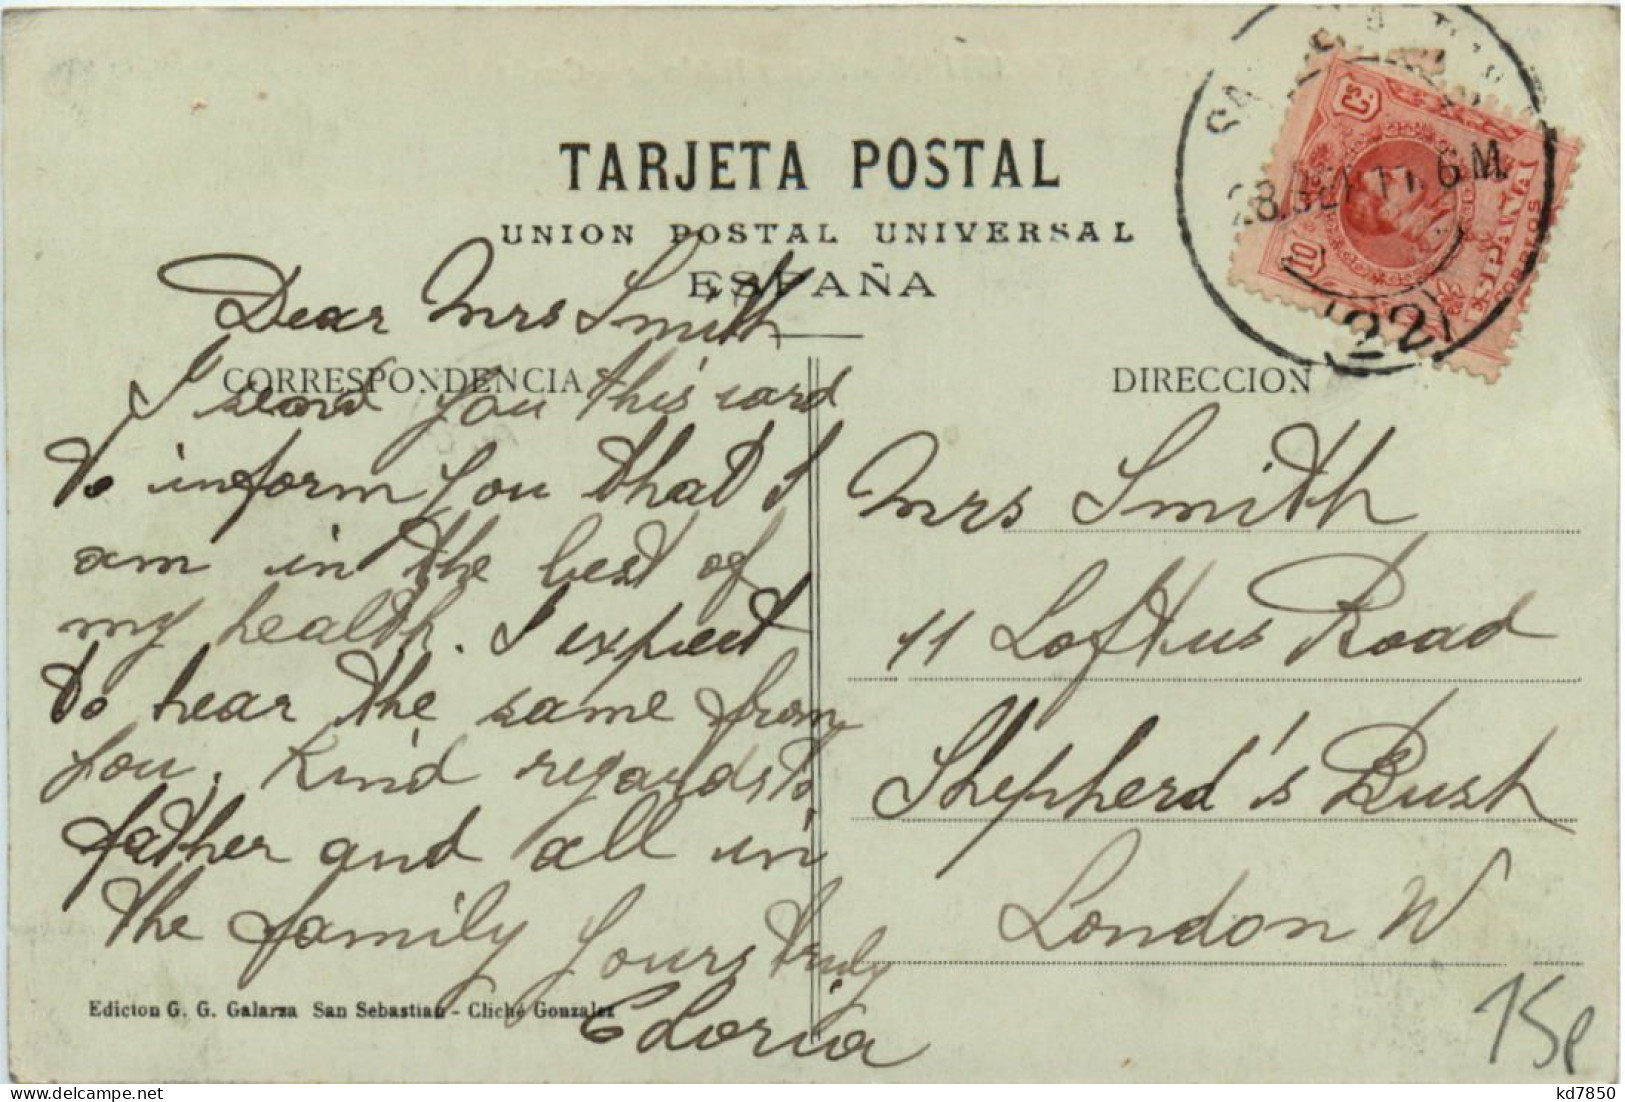 TARJETA POSTAL
UNION POSTAL UNIVERSAL
ESPAÑA
CORRESPONDENCIA
DIRECCION
Dear Mrs Smith
I send you this card
to inform you that I
am in the best of
my health. I expect
to hear the same from
you. Kind regards to
father and all in
the family Yours truly
Gloria
Mrs Smith
11 Loftus Road
Shepherd's Bush
London W
10 Cs
ESPAÑA
CORREOS
28. 6 M.
22
Edicton G. G. Galarza San Sebastian - Cliché Gonzalez
15p
kd7850